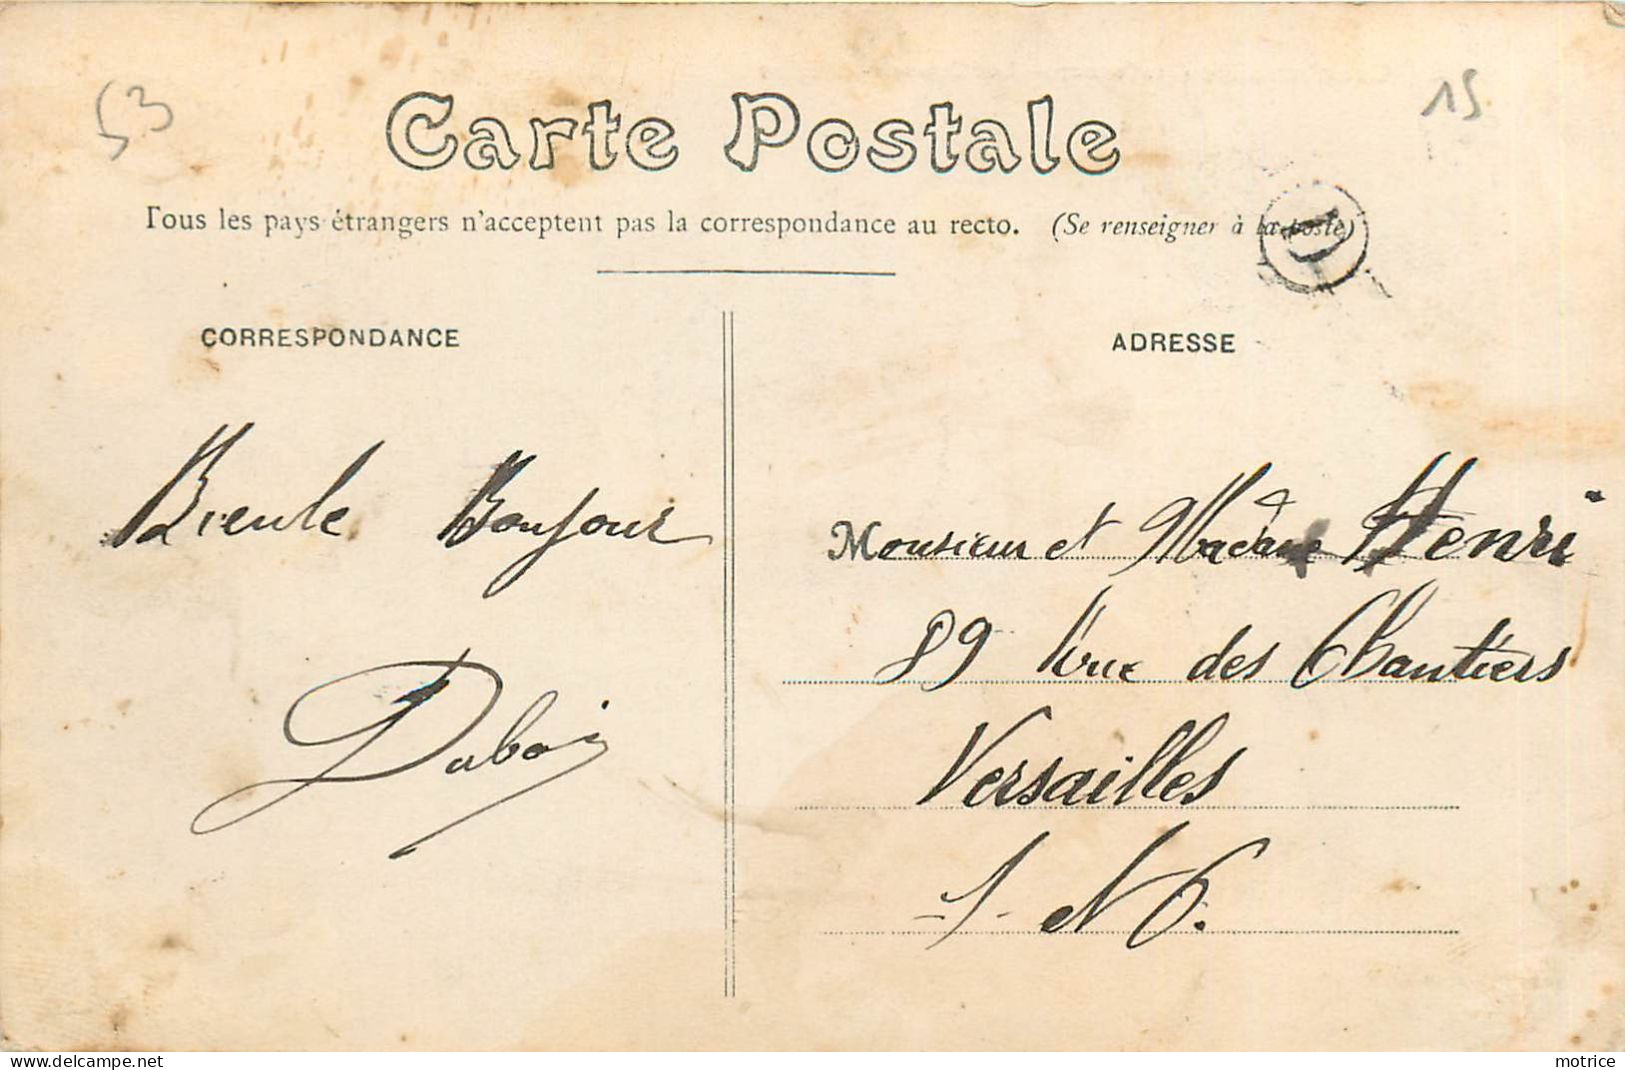 53
15
Carte Postale
Tous les pays étrangers n'acceptent pas la correspondance au recto. (Se renseigner à la poste)
D
CORRESPONDANCE
ADRESSE
Bonjour
Dubois
Monsieur et Madame Henri
89 rue des Chantiers
Versailles
S. et O.
delcampe.net
motrice